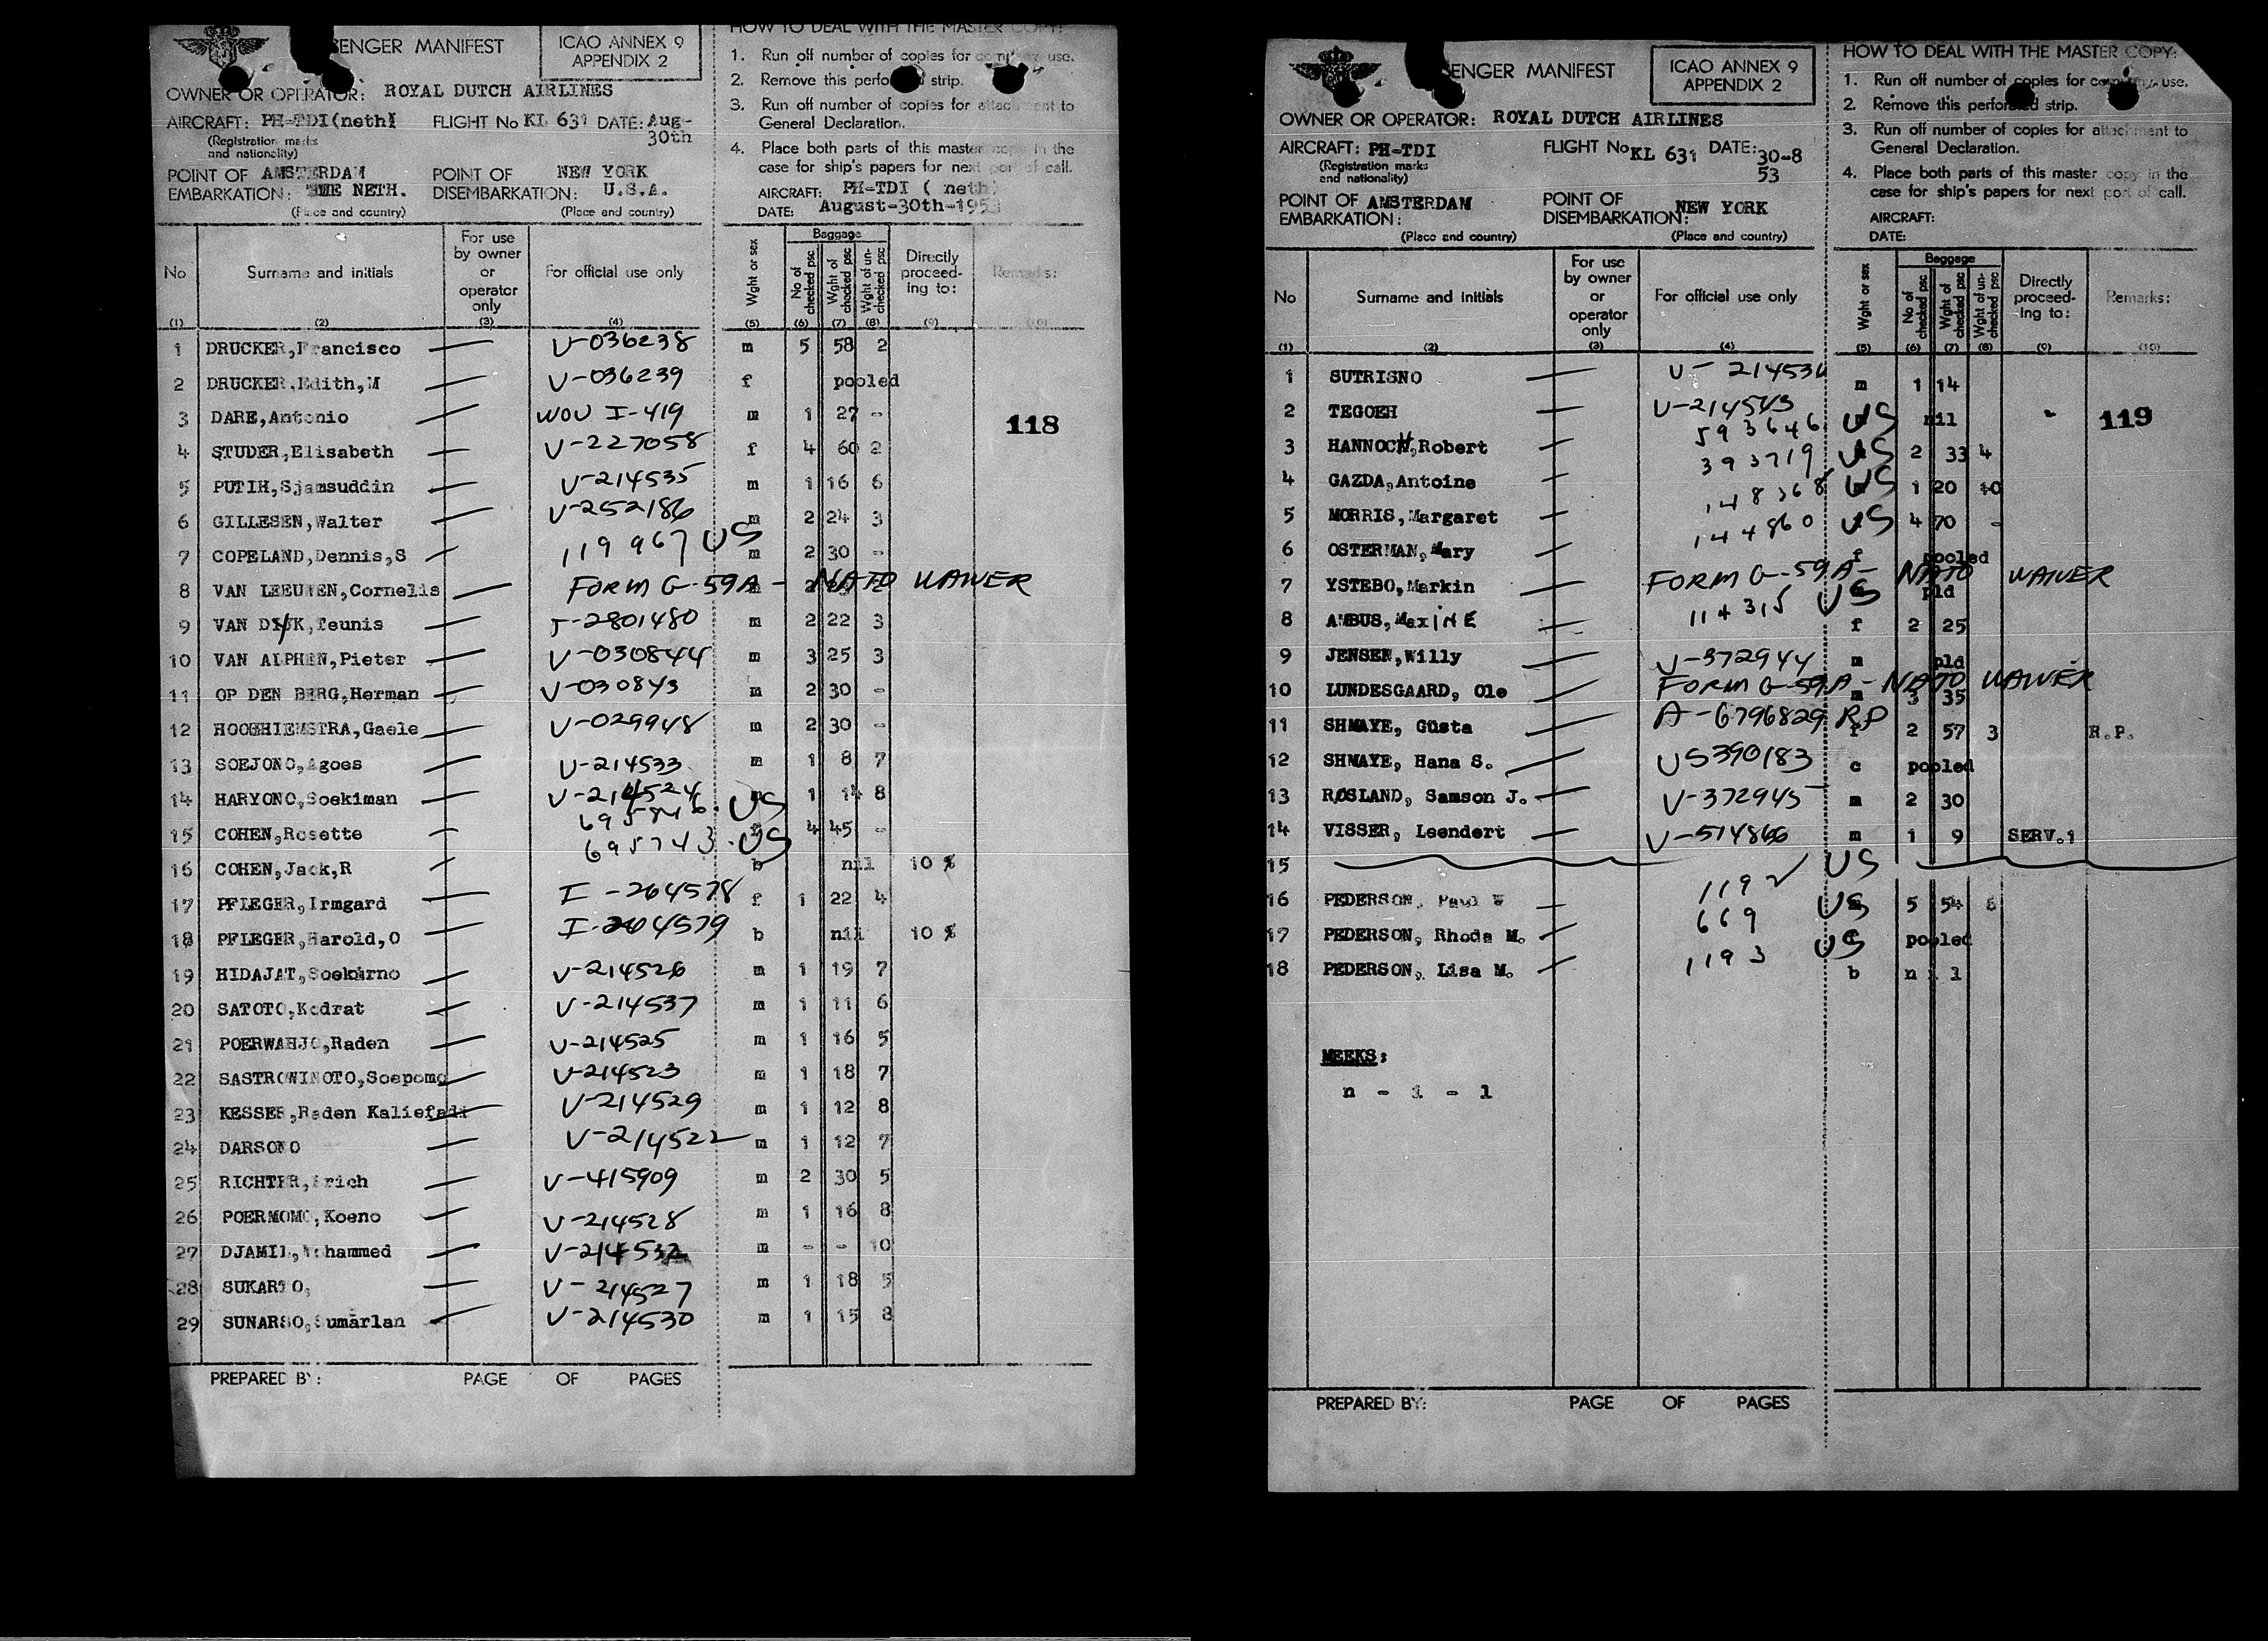 ENGER MANIFEST
ICAO ANNEX 9
APPENDIX 2
OWNER OR OPERATOR: ROYAL DUTCH AIRLINES
AIRCRAFT: PH-TDI(neth) FLIGHT No KL 631 DATE: Aug-
30th
(Registration marks
and nationality)
POINT OF AMSTERDAM POINT OF NEW YORK
EMBARKATION: THE NETH. DISEMBARKATION: U.S.A.
(Place and country) (Place and country)
HOW TO DEAL WITH THE MASTER COPY:
1. Run off number of copies for company use.
2. Remove this perforated strip.
3. Run off number of copies for attachment to
General Declaration.
4. Place both parts of this master copy in the
case for ship's papers for next port of call.
AIRCRAFT: PH-TDI ( neth)
DATE: August-30th-1953
No Surname and initials For use by owner or operator only For official use only Wght or sex Baggage No of checked psc Wght of checked psc Wght of un-checked psc Directly proceed-ing to: Remarks:
(1) (2) (3) (4) (5) (6) (7) (8) (9) (10)
1 DRUCKER,Francisco V-036238 m 5 58 2
2 DRUCKER,Edith,M V-036239 f pooled
3 DARE,Antonio WOU I-419 m 1 27 -
118
4 STUDER,Elisabeth V-227058 f 4 60 2
5 PUTIH,Sjamsuddin V-214535 m 1 16 6
6 GILLESEN,Walter V-252186 m 2 24 3
7 COPELAND,Dennis,S 119967 US m 2 30 -
8 VAN LEEUWEN,Cornelis FORM G-59A - NATO WAIVER
9 VAN DIJK,Teunis J-2801480 m 2 22 3
10 VAN ALPHEN,Pieter V-030844 m 3 25 3
11 OP DEN BERG,Herman V-030843 m 2 30 -
12 HOOGHIEMSTRA,Gaele V-029948 m 2 30 -
13 SOEJONO,Agoes V-214533 m 1 8 7
14 HARYONO,Soekiman V-214524 1 14 8
15 COHEN,Rosette 695846 US 4 45 -
16 COHEN,Jack,R 695743 US b nil 10 %
17 PFLEGER,Irmgard I-264578 f 1 22 4
18 PFLEGER,Harold,O I-264579 b nil 10 %
19 HIDAJAT,Soekarno V-214526 m 1 19 7
20 SATOTO,Kodrat V-214537 m 1 11 6
21 POERWAHJO,Raden V-214525 m 1 16 5
22 SASTROWINOTO,Soepomo V-214523 m 1 18 7
23 KESSER,Raden Kaliefadi V-214529 m 1 12 8
24 DARSONO V-214522 m 1 12 7
25 RICHTER,Erich V-415909 m 2 30 5
26 POERMOMO,Koeno V-214528 m 1 16 8
27 DJAMIL,Mohammed V-214532 m - - 10
28 SUKARTO, V-214527 m 1 18 5
29 SUNARSO,Sumarlan V-214530 m 1 15 8
PREPARED BY: PAGE OF PAGES
ENGER MANIFEST
ICAO ANNEX 9
APPENDIX 2
OWNER OR OPERATOR: ROYAL DUTCH AIRLINES
AIRCRAFT: PH-TDI FLIGHT No KL 631 DATE: 30-8
53
(Registration marks
and nationality)
POINT OF AMSTERDAM POINT OF
EMBARKATION: DISEMBARKATION: NEW YORK
(Place and country) (Place and country)
HOW TO DEAL WITH THE MASTER COPY:
1. Run off number of copies for company use.
2. Remove this perforated strip.
3. Run off number of copies for attachment to
General Declaration.
4. Place both parts of this master copy in the
case for ship's papers for next port of call.
AIRCRAFT:
DATE:
No Surname and initials For use by owner or operator only For official use only Wght or sex Baggage No of checked psc Wght of checked psc Wght of un-checked psc Directly proceed-ing to: Remarks:
(1) (2) (3) (4) (5) (6) (7) (8) (9) (10)
1 SUTRISNO V-214536 m 1 14
2 TEGOEH V-214543 nil
119
3 HANNOCH,Robert 593646 US 2 33 4
4 GAZDA,Antoine 393719 US 1 20 10
5 MORRIS,Margaret 148368 US 4 70 -
6 OSTERMAN,Mary 144860 US f pooled
7 YSTEBO,Markin FORM G-59A - NATO WAIVER pld
8 AMBUS,MaxINE 114315 US f 2 25
9 JENSEN,Willy V-372944 m pld
10 LUNDESGAARD, Ole FORM G-59A - NATO WAIVER m 3 35
11 SHMAYE, Gusta A-6796829 RP f 2 57 3 R.P.
12 SHMAYE, Hana S. US390183 c pooled
13 RØSLAND, Samson J. V-372945 m 2 30
14 VISSER, Leendert V-514866 m 1 9 SERV.1
15
16 PEDERSON, Paul W 1192 US 5 54
17 PEDERSON, Rhoda M. 669 US pooled
18 PEDERSON, Lisa M. 1193 US b n i l
MEEKS:
n - i - l
PREPARED BY: PAGE OF PAGES